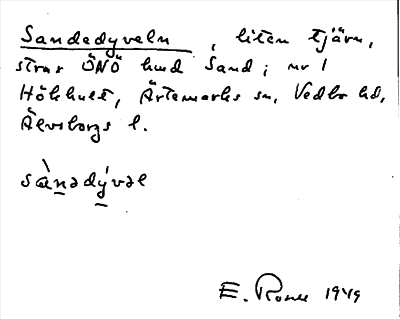 Sandedyveln, liten tjärn,
strax ÖNÖ hmd Sand; nr 1
Hökhult, Ärtemarks sn, Vedbo hd,
Älvsborgs l.
sànədývəl
E. 1949